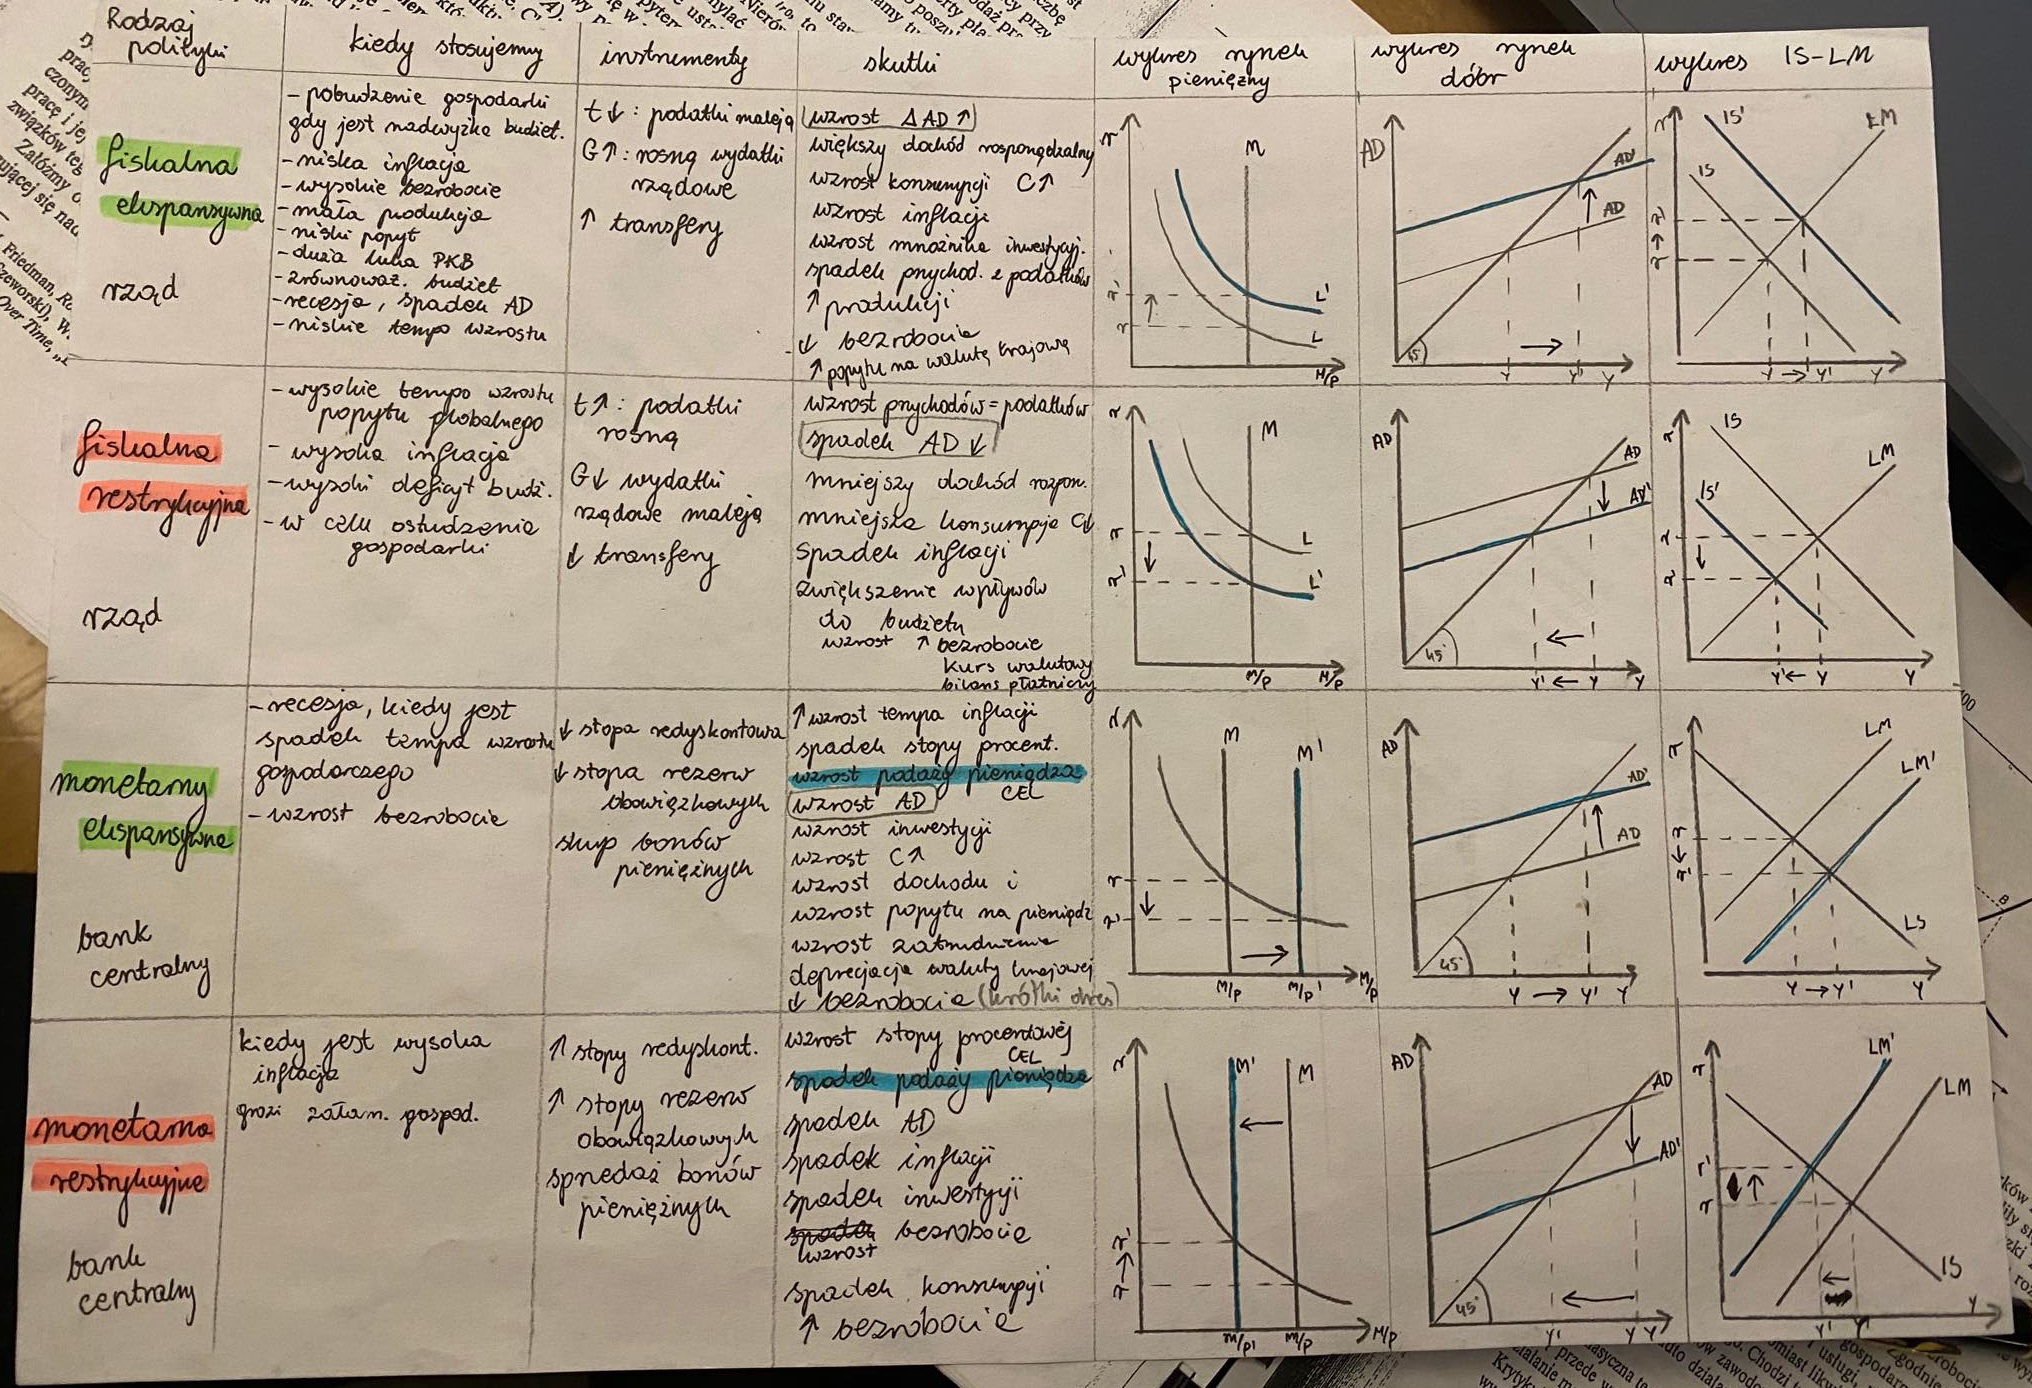 Rodzaj
polityki
kiedy stosujemy
instrumenty
skutki
wykres rynek
pieniężny
wykres rynek
dóbr
wykres IS-LM
fiskalna
ekspansywna
rząd
- pobudzenie gospodarki
gdy jest nadwyżka budżet.
- niska inflacja
- wysokie bezrobocie
- mała produkcja
- niski popyt
- duża luka PKB
- zrównoważ. budżet
- recesja, spadek AD
- niskie tempo wzrostu
t↓: podatki maleją
G↑: rosną wydatki
rządowe
↑ transfery
wzrost Δ AD ↑
większy dochód rosporządzalny
wzrost konsumpcji C↑
wzrost inflacji
wzrost mnożnika inwestycyj.
spadek przychod. z podatków
↑ produkcji
↓ bezrobocie
↑ popytu na walutę krajową
r
M
r'
r
L'
L
M/P
AD
AD'
AD
45°
Y
Y'
Y
r
IS'
IS
LM
r'
r
Y → Y'
Y
fiskalna
restrykcyjna
rząd
- wysokie tempo wzrostu
popytu globalnego
- wysoka inflacja
- wysoki deficyt budż.
- w celu ostudzenia
gospodarki
t↑: podatki
rosną
G↓ wydatki
rządowe maleją
↓ transfery
wzrost przychodów = podatków
spadek AD ↓
mniejszy dochód rozporz.
mniejsza konsumpcja C↓
spadek inflacji
zwiększenie wpływów
do budżetu
wzrost ↑ bezrobocie
kurs walutowy
bilans płatniczy
r
M
r
r'
L
L'
M/P
M/P
AD
AD
AD'
45°
Y' ← Y
Y
r
IS
IS'
LM
r
r'
Y' ← Y
Y
monetarny
ekspansywna
bank
centralny
- recesja, kiedy jest
spadek tempa wzrostu
gospodarczego
- wzrost bezrobocie
↓ stopa redyskontowa
↓ stopa rezerw
obowiązkowych
skup bonów
pieniężnych
↑ wzrost tempa inflacji
spadek stopy procent.
wzrost podaży pieniądza
CEL
wzrost AD
wzrost inwestycji
wzrost C↑
wzrost dochodu i
wzrost popytu na pieniądz
wzrost zatrudnienie
deprecjacja waluty krajowej
↓ bezrobocie (krótki okres)
r
M
M'
r
r'
M/P
M/P'
M/P
AD
AD'
AD
45°
Y → Y'
Y
r
LM
LM'
r
r'
LS
Y → Y'
Y
monetarna
restrykcyjne
bank
centralny
kiedy jest wysoka
inflacja
grozi załam. gospod.
↑ stopy redyskont.
↑ stopy rezerw
obowiązkowych
sprzedaż bonów
pieniężnych
wzrost stopy procentowej
CEL
spadek podaży pieniądza
spadek AD
spadek inflacji
spadek inwestycji
spadek bezrobocie
wzrost
spadek konsumpcji
↑ bezrobocie
r
M'
M
r'
r
M/P'
M/P
M/P
AD
AD
AD'
45°
Y'
Y
Y
r
LM'
LM
r'
r
IS
Y'
Y'
Y